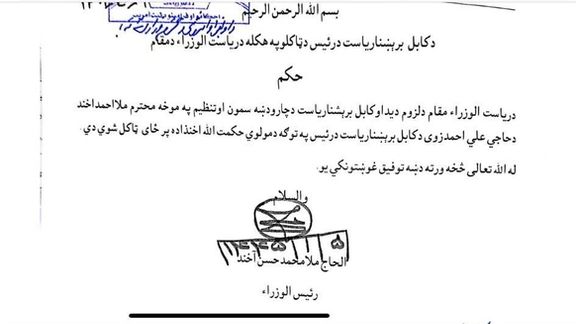 بسم الله الرحمن الرحیم
دکابل برېښناریاست درئیس دټاکلوپه هکله دریاست الوزراء دمقام
حکم
دریاست الوزراء مقام دلزوم دیداوکابل برېشناریاست دچارودښه سمون اوتنظیم په موخه محترم ملااحمداخند
دحاجي علي احمدزوی دکابل برېښناریاست درئیس په توګه دمولوي حکمت الله اخندذاده پر ځای ټاکل شوي دي.
له الله تعالی څخه ورته دښه توفیق غوښتونکي یو.
والسلام
الحاج ملا محمدحسن آخند
رئیس الوزراء